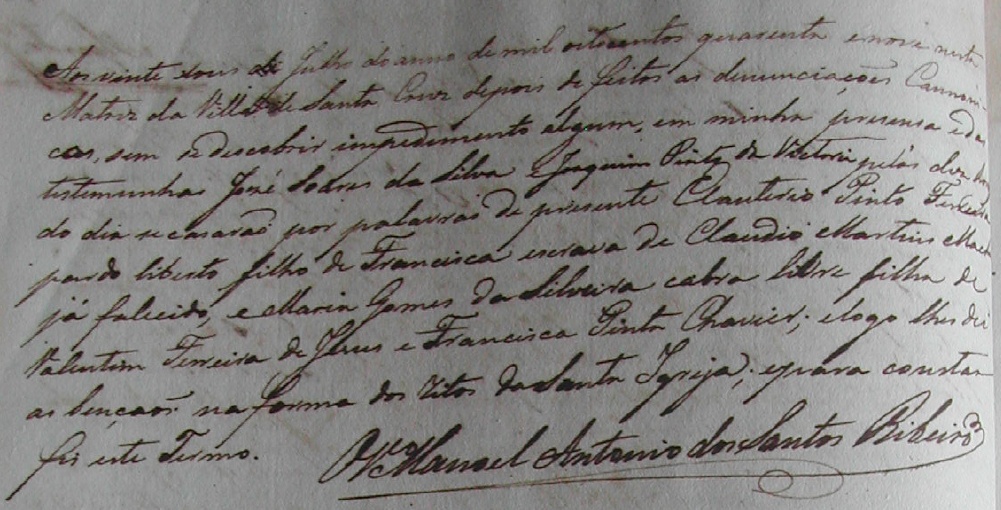 Aos vinte dous de Julho do anno de mil oitocentos quarenta e nove nesta
Matriz da Villa de Santa Cruz depois de feitas as denunciações Cannoni-
cas, sem se descobrir impedimento algum, em minha presensa e das
testimunhas José Soares da Silva Joaquim Pinto da Victoria pelas
do dia se casarão por palavras de presente Clauterio Pinto Ferreira
pardo liberto filho de Francisca escrava de Claudio Martins
já falecido, e Maria Gomes da Silveira cabra libre filha de
Valentim Ferreira de Jesus e Francisca Pinta Chavier; e logo lhes dei
as bençãos na forma dos ritos da Santa Igreja; e para constar
fis este Termo.
Manoel Antonio dos Santos Ribeiro